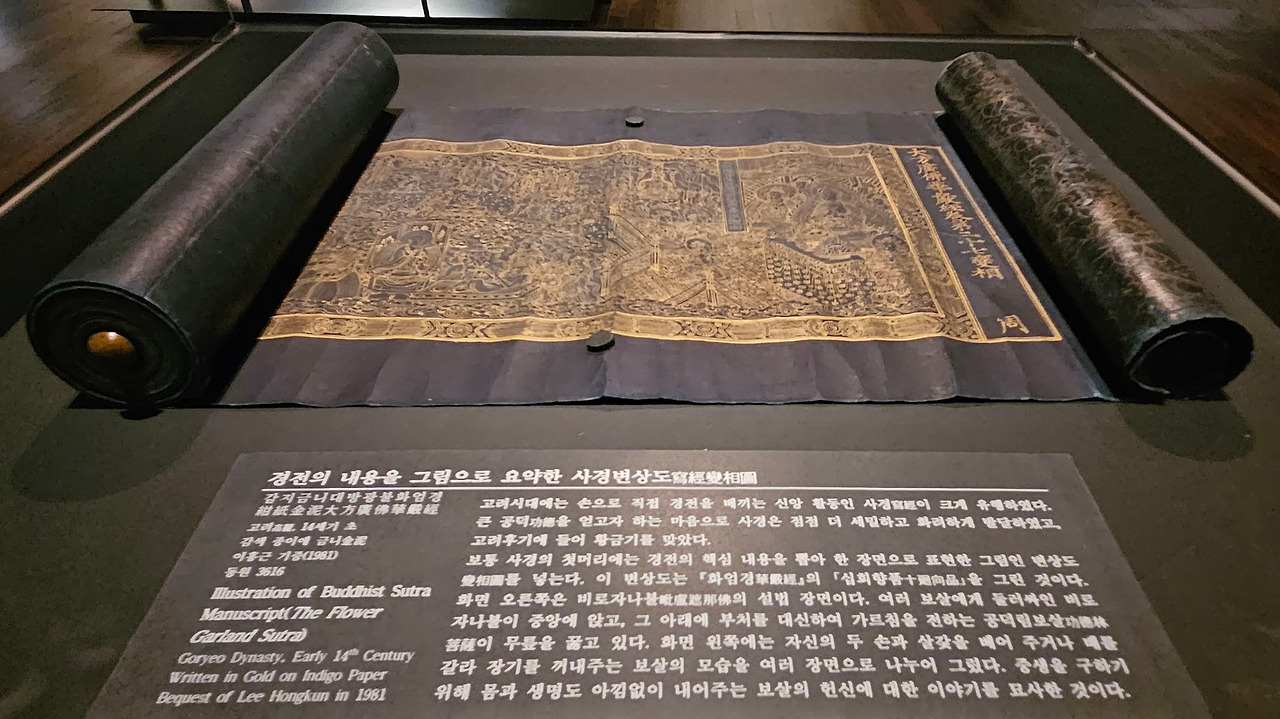 大方廣佛華嚴經卷第三十一變相
周
경전의 내용을 그림으로 요약한 사경변상도寫經變相圖
감지금니대방광불화엄경
紺紙金泥大方廣佛華嚴經
고려高麗, 14세기 초
감색 종이에 금니金泥
이홍근 기증(1981)
동원 3616
Illustration of Buddhist Sutra
Manuscript(The Flower
Garland Sutra)
Goryeo Dynasty, Early 14th Century
Written in Gold on Indigo Paper
Bequest of Lee Hongkun in 1981
고려시대에는 손으로 직접 경전을 베끼는 신앙 활동인 사경寫經이 크게 유행하였다.
큰 공덕功德을 얻고자 하는 마음으로 사경은 점점 더 세밀하고 화려하게 발달하였고,
고려후기에 들어 황금기를 맞았다.
보통 사경의 첫머리에는 경전의 핵심 내용을 뽑아 한 장면으로 표현한 그림인 변상도
變相圖를 넣는다. 이 변상도는 『화엄경華嚴經』의 「십회향품十廻向品」을 그린 것이다.
화면 오른쪽은 비로자나불毗盧遮那佛의 설법 장면이다. 여러 보살에게 둘러싸인 비로
자나불이 중앙에 앉고, 그 아래에 부처를 대신하여 가르침을 전하는 공덕림보살功德林
菩薩이 무릎을 꿇고 있다. 화면 왼쪽에는 자신의 두 손과 살갗을 베어 주거나 배를
갈라 장기를 꺼내주는 보살의 모습을 여러 장면으로 나누어 그렸다. 중생을 구하기
위해 몸과 생명도 아낌없이 내어주는 보살의 헌신에 대한 이야기를 묘사한 것이다.